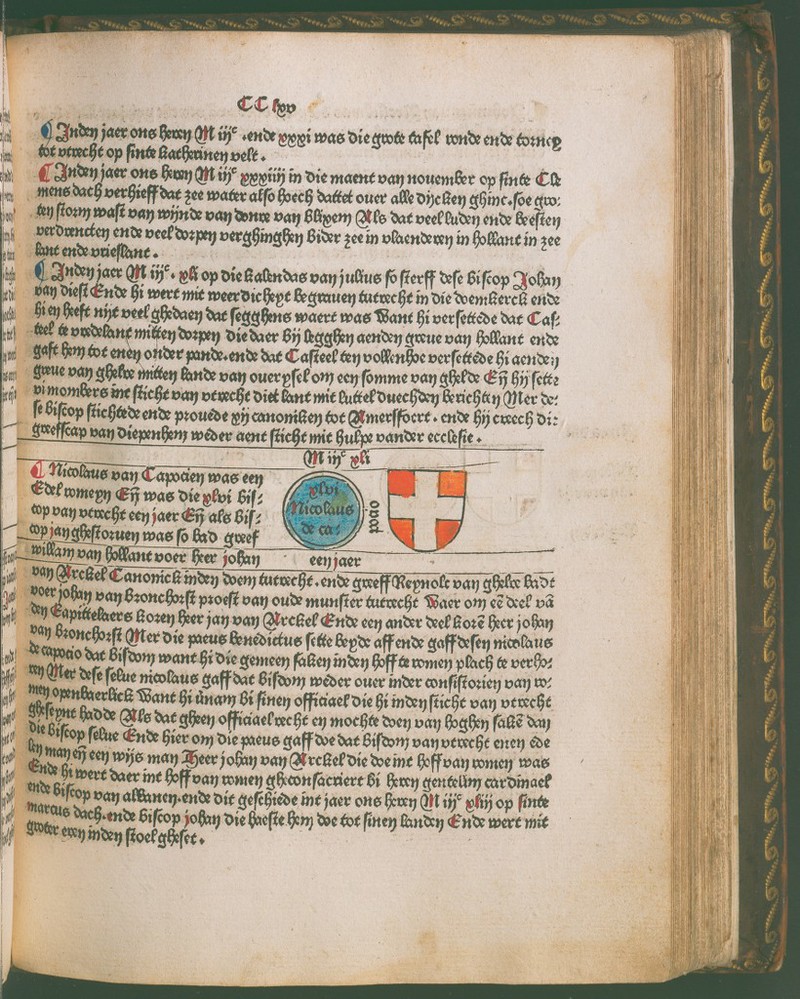 CC lxv
¶ Inden jaer ons heren M iijᶜ .ende xxxi was die grote tafel ronde ende torney
tot vtrecht op sinte katherinen velt .
¶ Inden jaer ons heren M iijᶜ xxxiiij in die maent van nouember op sinte Cle
mens dach verhieff dat zee water also hoech dattet ouer alle dijcken ghinc. soe gro⸗
ten storm wast van wijnde van donre van blixem Als dat veel luden ende beesten
verdroncten ende veel dorpen verghinghen bider zee in vlaenderen in hollant in zee
lant ende vrieslant .
¶ Inden jaer M iijᶜ . xli op die kalendas van julius so sterff dese biscop Johan
van diest Ende hi wert mit weerdicheyt begrauen tutrecht in die doemkerck ende
hi en heeft nijt veel ghedaen dat segghens waert was Want hi versettēde dat Cas⸗
teel te vredelant mitten dorpen die daer bij legghen aenden greue van hollant ende
gaft hem tot enen onder pande. ende dat Casteel ten vollenhoe versettēde hi aenden
greue van ghelre mitten lande van ouerysel om een somme van ghelde Eñ hij sette
vi mombers int sticht van vtrecht diet lant mit luttel duechden berichten Mer de⸗
se biscop stichtede ende prouēde xij canoniken tot Amersfoert . ende hij creech di⸗
greefscap van diepenhem wēder aent sticht mit hulpe vander ecclesie .
M iijᶜ xli
¶ Nicolaus van Capocien was een
Edel romeyn Eñ was die xlvi bis⸗
cop van vtrecht een jaer Eñ als bis⸗
cop jan ghestoruen was so bad greef
willam van hollant voer heer johan
xlvi
Nicolaus
de ca⸗
pocio
een jaer
van Arckel Canonick inden doem tutrecht . ende greeff Reynolt van ghelre badt
voer johan van bronchorst proest van oude munster tutrecht Waer om eē deel vā
den Capittelaers koren heer jan van Arckel Ende een ander deel korē heer johan
van bronchorst Mer die paeus benedictus sette beyde aff ende gaff desen nicolaus
de capocio dat bisdom want hi die gemeen saken inden hoff te romen plach te verho⸗
ren Mer dese selue nicolaus gaff dat bisdom wēder ouer inder consistorien van ro⸗
men openbaerlick Want hi vernam bi sinen officiael die hi inden sticht van vtrecht
gheseynt hadde Als dat gheen officiael recht en mochte doen van hoghen sakē dan
die biscop selue Ende hier om die paeus gaff doe dat bisdom van vtrecht enen ēde
len man eñ een wijs man Heer johan van Arckel die doe int hoff van romen was
Ende hi wert daer int hoff van romen gheconsacriert bi heren gentelim cardinael
ende biscop van albanen. ende dit geschiēde int jaer ons heren M iijᶜ xliij op sinte
marcus dach. ende biscop johan die haeste hem doe tot sinen landen Ende wert mit
groter eren inden stoel gheset .